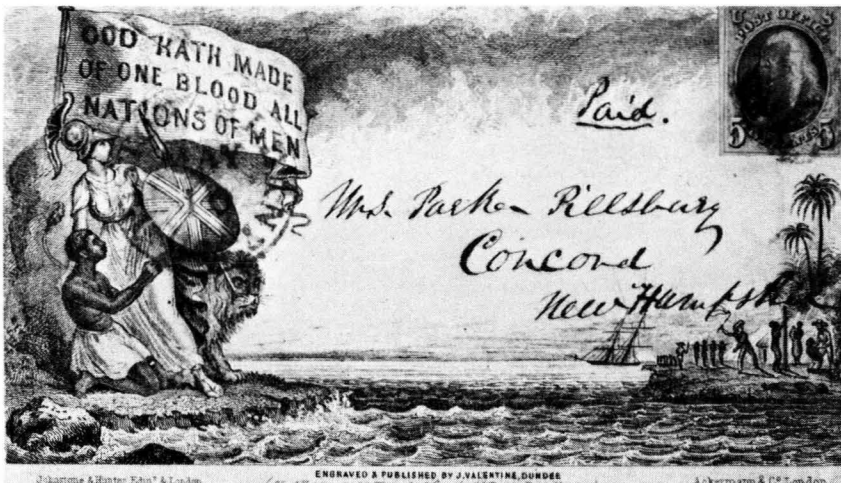 GOD HATH MADE
OF ONE BLOOD ALL
NATIONS OF MEN
MAY
POST OFFICE
5 5
Paid.
Mrs. Parker Pillsbury
Concord
New Hampshire
Johnstone & Hunter Edinr. & London
ENGRAVED & PUBLISHED BY J. VALENTINE, DUNDEE
Ackermann & Co. London